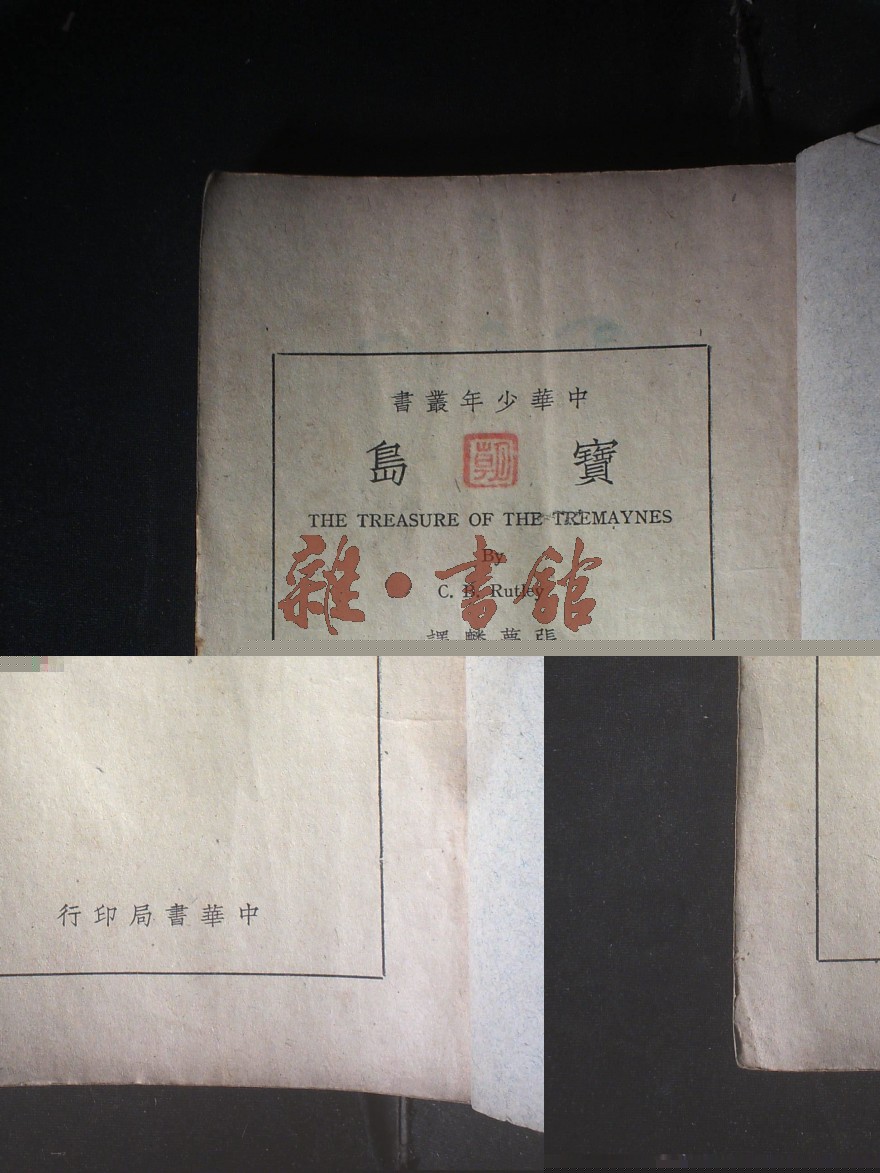 中華少年叢書
寶島
THE TREASURE OF THE TREMAYNES
By
C. B. Rutley
雜·書館
張夢麟譯
中華書局印行